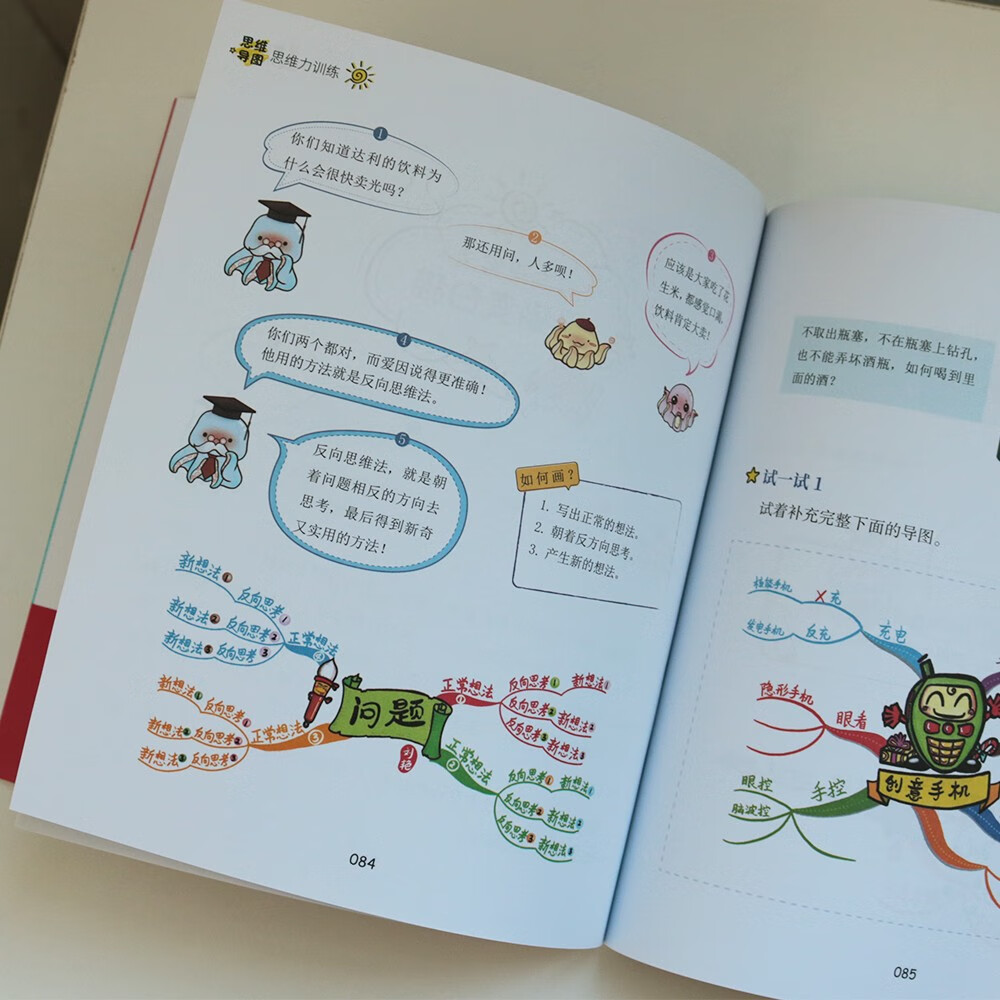 思维
导图
思维力训练
1
你们知道达利的饮料为
什么会很快卖光吗？
2
那还用问，人多呗！
3
应该是大家吃了花
生米，都感觉口渴，
饮料肯定大卖！
4
你们两个都对，而爱因说得更准确！
他用的方法就是反向思维法。
5
反向思维法，就是朝
着问题相反的方向去
思考，最后得到新奇
又实用的方法！
如何画？
1. 写出正常的想法。
2. 朝着反方向思考。
3. 产生新的想法。
问题
刘艳
正常想法 1
反向思考 1 新想法 1
反向思考 2 新想法 2
反向思考 3 新想法 3
正常想法 2
反向思考 1 新想法 1
反向思考 2 新想法 2
反向思考 3 新想法 3
正常想法 3
新想法 1 反向思考 1
新想法 2 反向思考 2
新想法 3 反向思考 3
正常想法 4
新想法 1 反向思考 1
新想法 2 反向思考 2
新想法 3 反向思考 3
084
不取出瓶塞，不在瓶塞上钻孔，
也不能弄坏酒瓶，如何喝到里
面的酒？
试一试 1
试着补充完整下面的导图。
创意手机
充电
手机 充
发电手机 反充
眼看
隐形手机
手控
眼控
脑波控
085